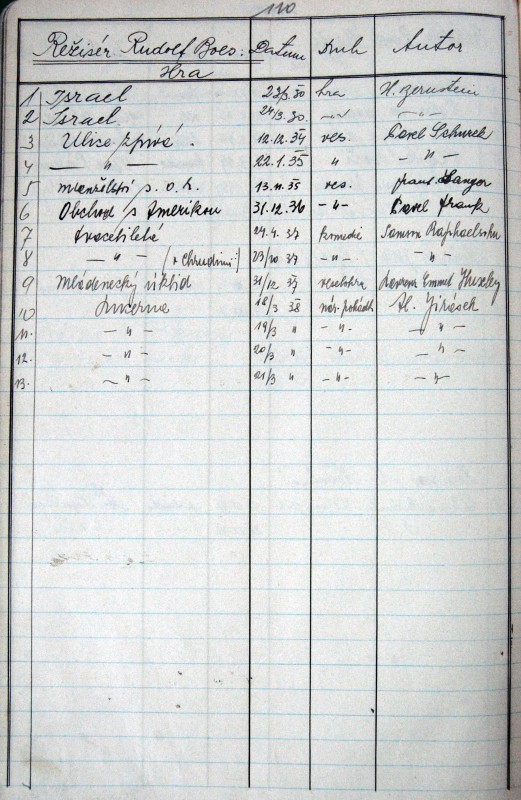 110
Režisér Rudolf Boes: Datum Druh Autor
Hra
1 Israel 23/3. 30 hra H. Bernstein
2 Israel. 24/3. 30. -"- -"-
3 Ulice zpívá. 12.12.34 ves. Pavel Schurek
4 -"- 22.1.35 " -"-
5 manželství s. o. h. 13.11.35 ves. frant. Langer
6 Obchod s Amerikou 31.12.36 -"- Pavel Frank
7 dvacetiletá 24.4.37 komedie Samson
8 -"- (v Chrudimi) 23/10 37 -"- -"-
9 Mládenecký 31/12 37 veselohra
10 Lucerna 18/3 38 nár. pohádka Al. Jirásek
11. -"- 19/3 " -"- -"-
12. -"- 20/3 " -"- -"-
13. -"- 21/3 " -"- -"-